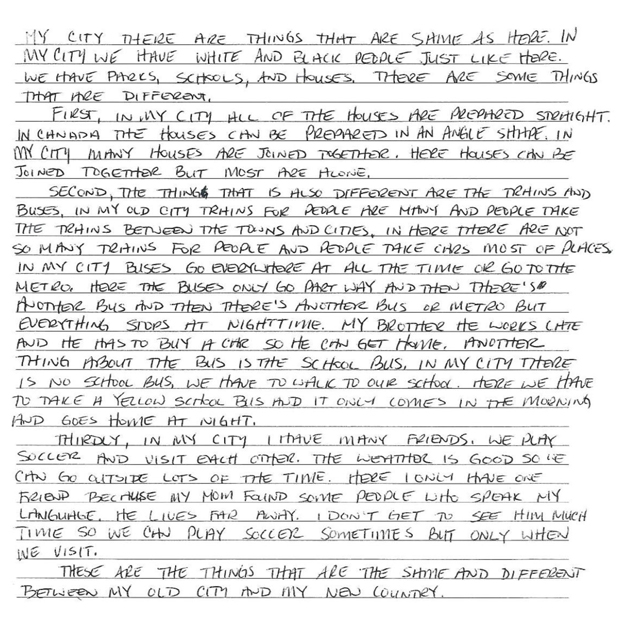 MY CITY THERE ARE THINGS THAT ARE SAME AS HERE. IN
MY CITY WE HAVE WHITE AND BLACK PEOPLE JUST LIKE HERE.
WE HAVE PARKS, SCHOOLS, AND HOUSES. THERE ARE SOME THINGS
THAT ARE DIFFERENT.
FIRST, IN MY CITY ALL OF THE HOUSES ARE PREPARED STRAIGHT.
IN CANADA THE HOUSES CAN BE PREPARED IN AN ANGLE SHAPE. IN
MY CITY MANY HOUSES ARE JOINED TOGETHER. HERE HOUSES CAN BE
JOINED TOGETHER BUT MOST ARE ALONE.
SECOND, THE THINGS THAT IS ALSO DIFFERENT ARE THE TRAINS AND
BUSES. IN MY OLD CITY TRAINS FOR PEOPLE ARE MANY AND PEOPLE TAKE
THE TRAINS BETWEEN THE TOWNS AND CITIES. IN HERE THERE ARE NOT
SO MANY TRAINS FOR PEOPLE AND PEOPLE TAKE CARS MOST OF PLACES.
IN MY CITY BUSES GO EVERYWHERE AT ALL THE TIME OR GO TO THE
METRO. HERE THE BUSES ONLY GO PART WAY AND THEN THERE'S
ANOTHER BUS AND THEN THERE'S ANOTHER BUS OR METRO BUT
EVERYTHING STOPS AT NIGHTTIME. MY BROTHER HE WORKS LATE
AND HE HAS TO BUY A CAR SO HE CAN GET HOME. ANOTHER
THING ABOUT THE BUS IS THE SCHOOL BUS. IN MY CITY THERE
IS NO SCHOOL BUS. WE HAVE TO WALK TO OUR SCHOOL. HERE WE HAVE
TO TAKE A YELLOW SCHOOL BUS AND IT ONLY COMES IN THE MORNING
AND GOES HOME AT NIGHT.
THIRDLY, IN MY CITY I HAVE MANY FRIENDS. WE PLAY
SOCCER AND VISIT EACH OTHER. THE WEATHER IS GOOD SO WE
CAN GO OUTSIDE LOTS OF THE TIME. HERE I ONLY HAVE ONE
FRIEND BECAUSE MY MOM FOUND SOME PEOPLE WHO SPEAK MY
LANGUAGE. HE LIVES FAR AWAY. I DON'T GET TO SEE HIM MUCH
TIME SO WE CAN PLAY SOCCER SOMETIMES BUT ONLY WHEN
WE VISIT.
THESE ARE THE THINGS THAT ARE THE SAME AND DIFFERENT
BETWEEN MY OLD CITY AND MY NEW COUNTRY.